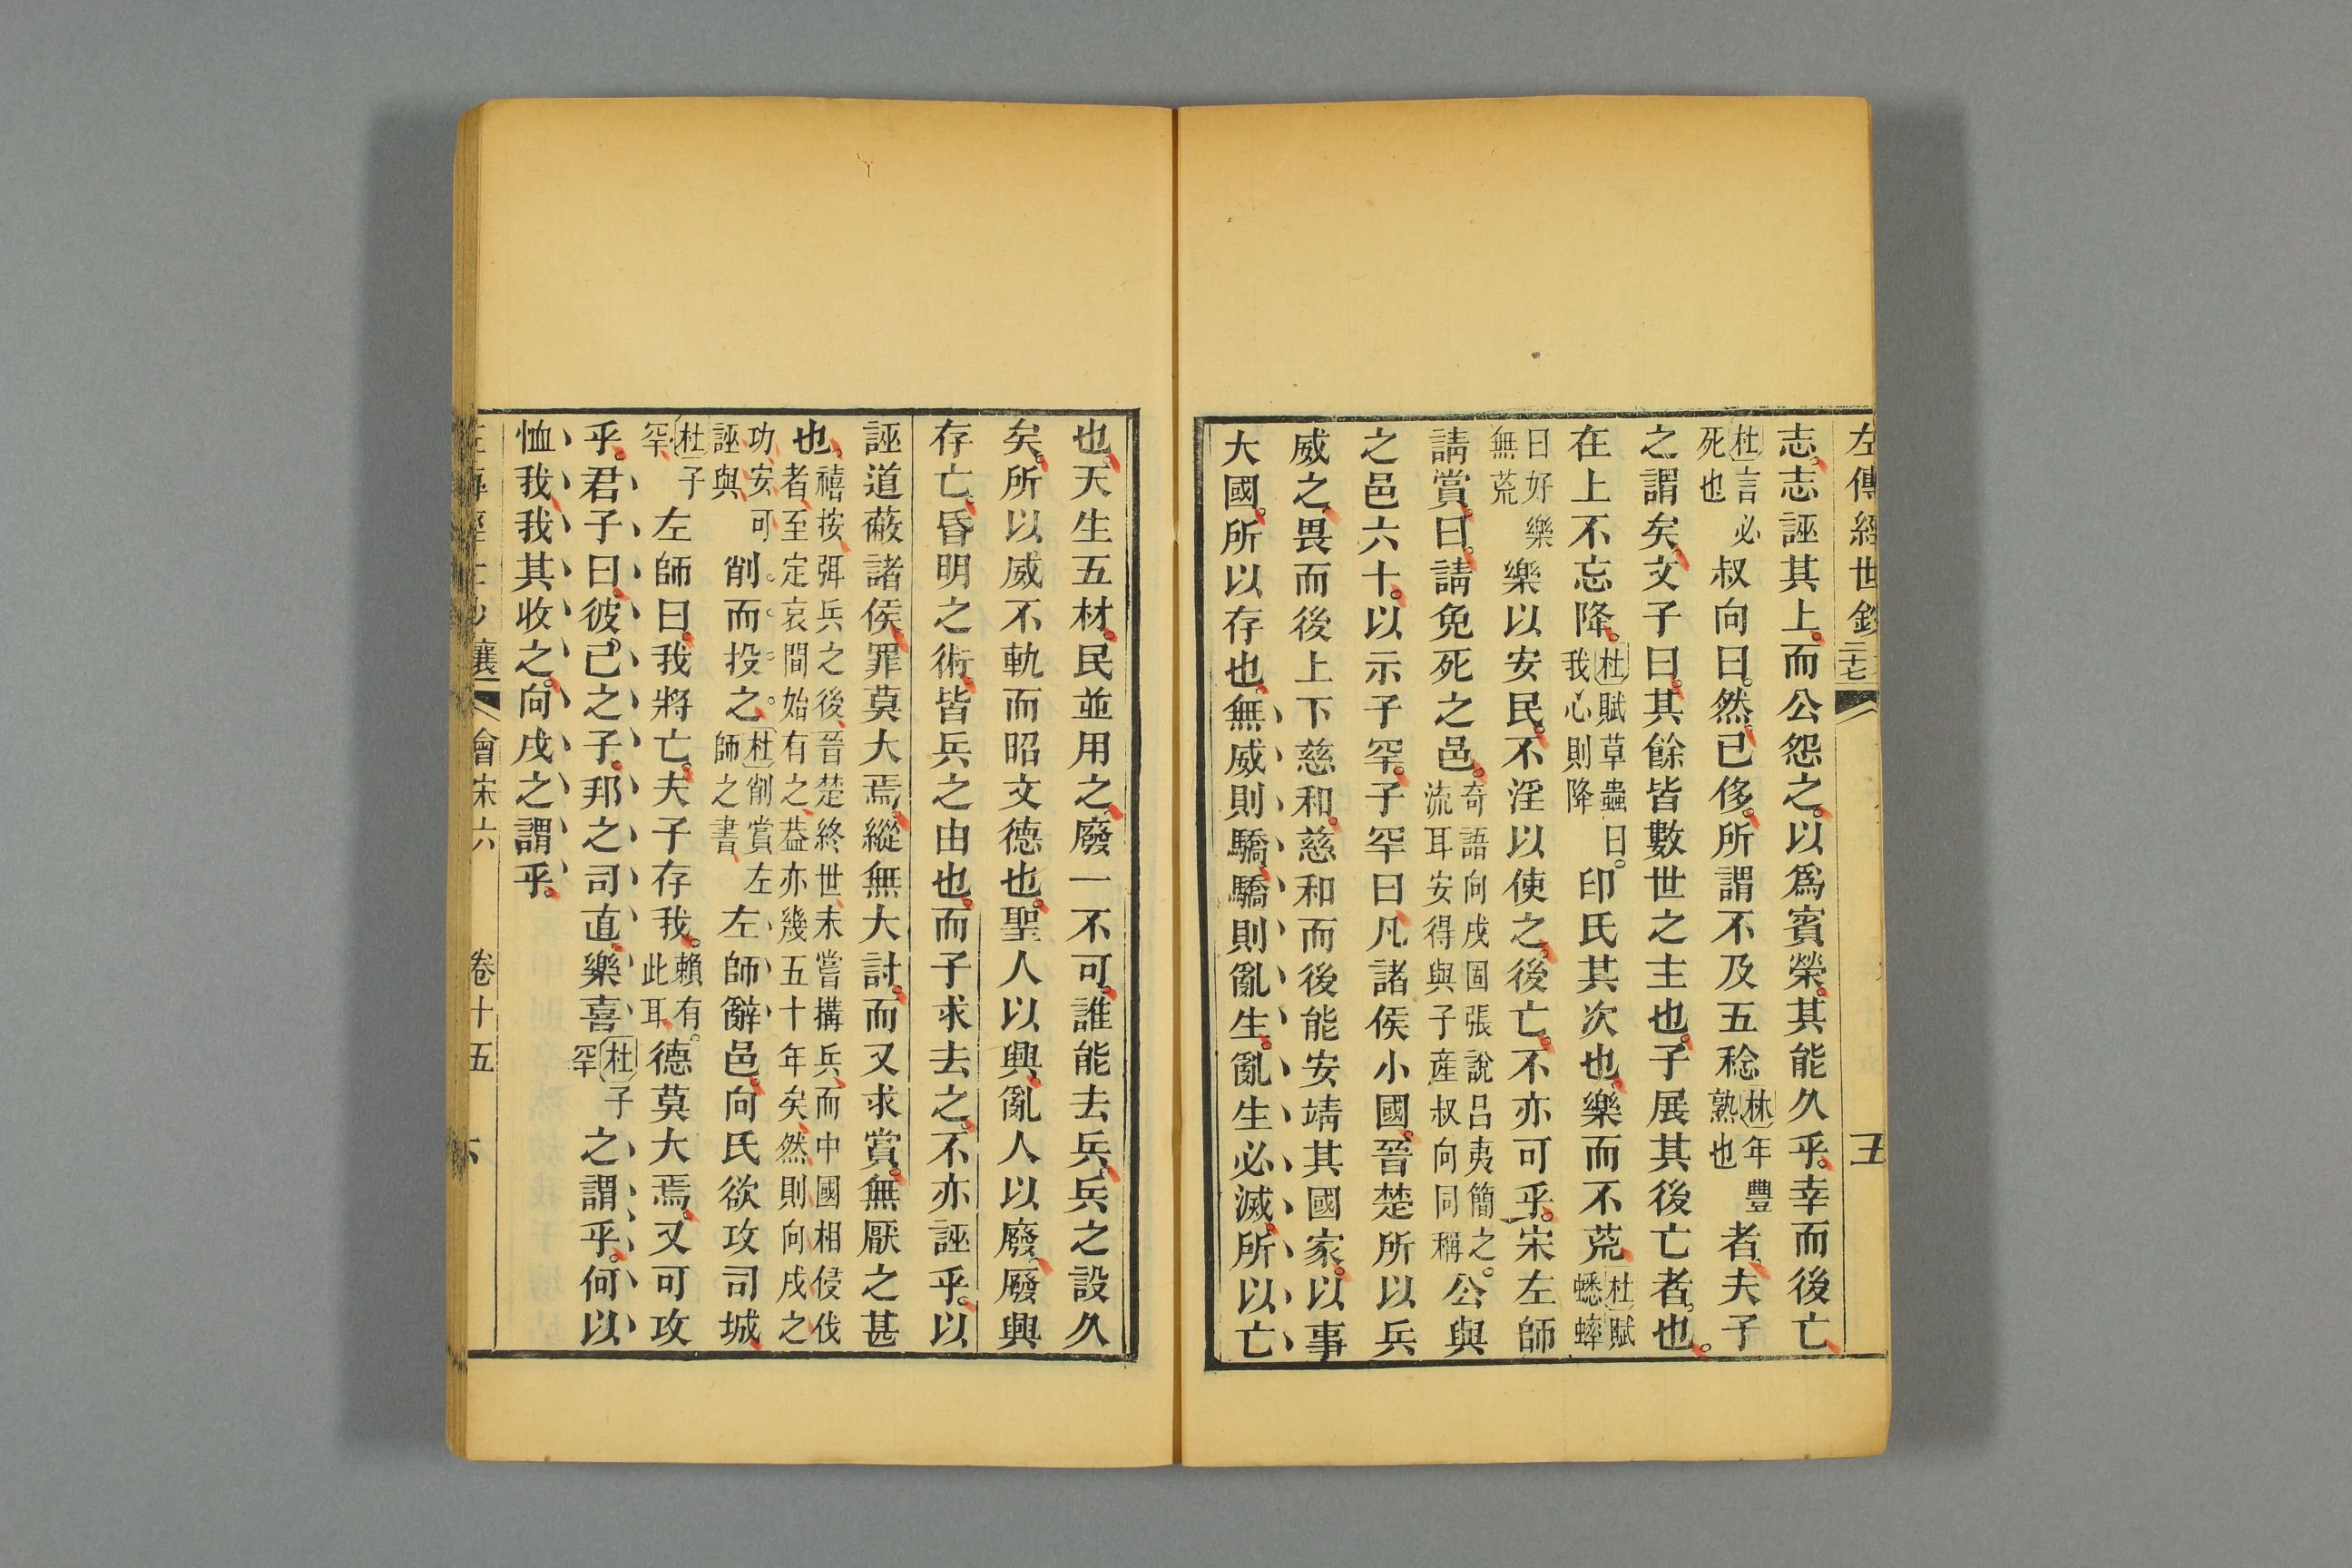 左傳經世鈔 二七 五
志。志誣其上。而公怨之。以爲賓榮。其能久乎。幸而後亡。
杜言必死也 叔向曰。然。已侈。所謂不及五稔 林年豐熟也 者。夫子
之謂矣。文子曰。其餘皆數世之主也。子展其後亡者也。
在上不忘降。 杜賦草蟲曰。我心則降 印氏其次也。樂而不荒。 杜賦蟋蟀
曰好樂無荒 樂以安民。不淫以使之。後亡。不亦可乎。宋左師
請賞。曰。請免死之邑。 奇語向戌固張說呂夷簡之。流耳安得與子產叔向同稱 公與
之邑六十。以示子罕。子罕曰。凡諸侯小國。晉楚所以兵
威之。畏而後上下慈和。慈和而後能安靖其國家。以事
大國。所以存也。無威則驕。驕則亂生。亂生必滅。所以亡
也。天生五材。民並用之。廢一不可。誰能去兵。兵之設久
矣。所以威不軌而昭文德也。聖人以興。亂人以廢。廢興
存亡。昏明之術。皆兵之由也。而子求去之。不亦誣乎。以
誣道蔽諸侯。罪莫大焉。縱無大討。而又求賞。無厭之甚
也。 禧按弭兵之後、晉楚終世、未嘗搆兵、而中國相侵伐者、至定哀間始有之、葢亦幾五十年矣、然則向戌之
功、安可誣與、 削而投之。 杜削賞左師之書、 左師辭邑。向氏欲攻司城。
杜子罕、 左師曰。我將亡。夫子存我。 賴有。此耳、 德莫大焉。又可攻
乎。君子曰。彼己之子。邦之司直。樂喜 杜子罕 之謂乎。何以
恤我。我其收之。向戌之謂乎。
襄 會宋六 卷十五